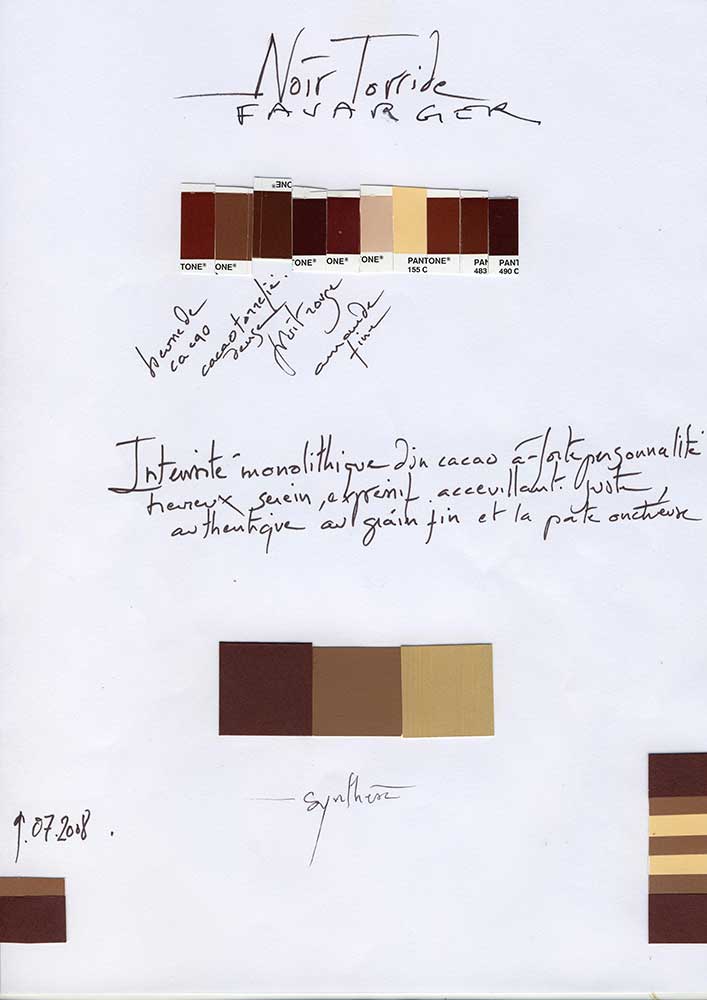 Noir Torride
FAVARGER
ONE®
TONE® ONE® TONE® ONE® ONE® PANTONE® PAN PANT
155 C 483 490 C
beurre de
cacao
cacao torréfié
fruit rouge
amande
fine
Intensité monolithique d'un cacao à forte personnalité
heureux serein, expressif accueillant. juste,
authentique au grain fin et la pâte onctueuse
synthèse
9.07.2008.